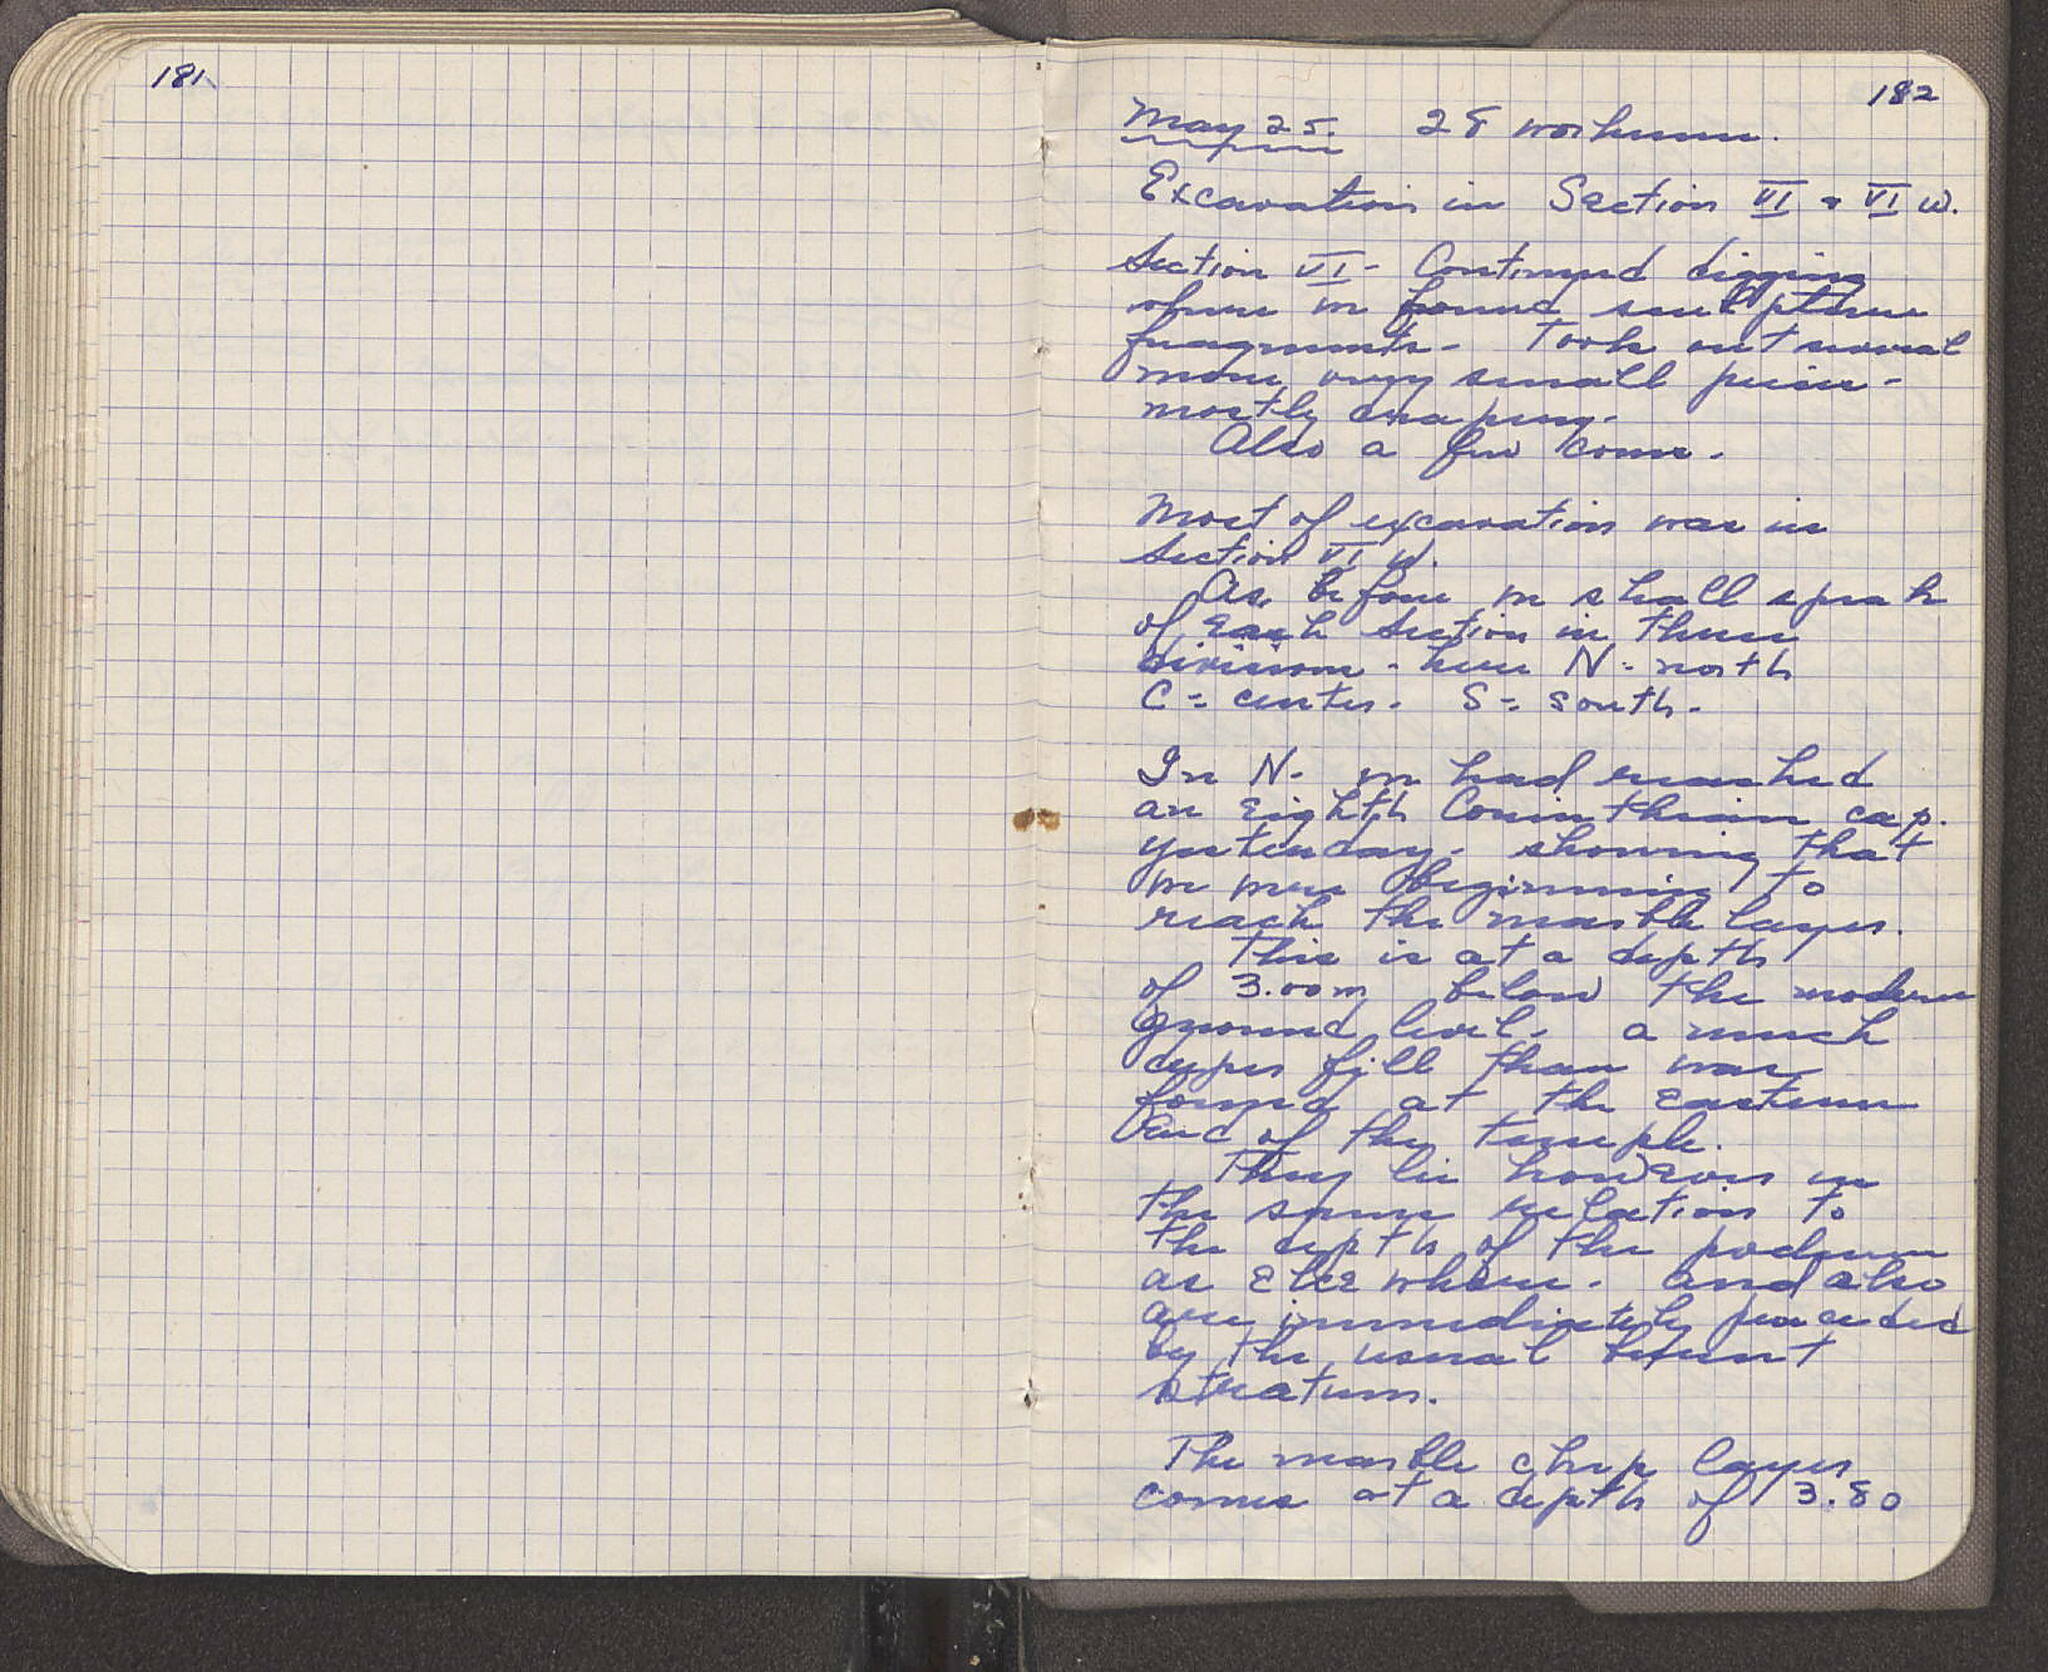 181
182
May 25. 28 workmen.
Excavation in Section VI + VI W.
Section VI - Continued digging
where we found sculpture
fragments - Took out several
more very small pieces -
mostly drapery.
Also a few coins.
Most of excavation was in
Section VI W.
As before we shall speak
of each section in three
divisions - here N = north
C = center. S = south.
In N. we had reached
an eighth Corinthian cap.
yesterday - showing that
we were beginning to
reach the marble layer.
This is at a depth
of 3.00m below the modern
ground level. a much
deeper fill than was
found at the Eastern
end of the temple.
They lie however in
the same relation to
the depth of the podium
as elsewhere. and also
are immediately preceded
by the usual burnt
stratum.
The marble chip layer
comes at a depth of 3.80